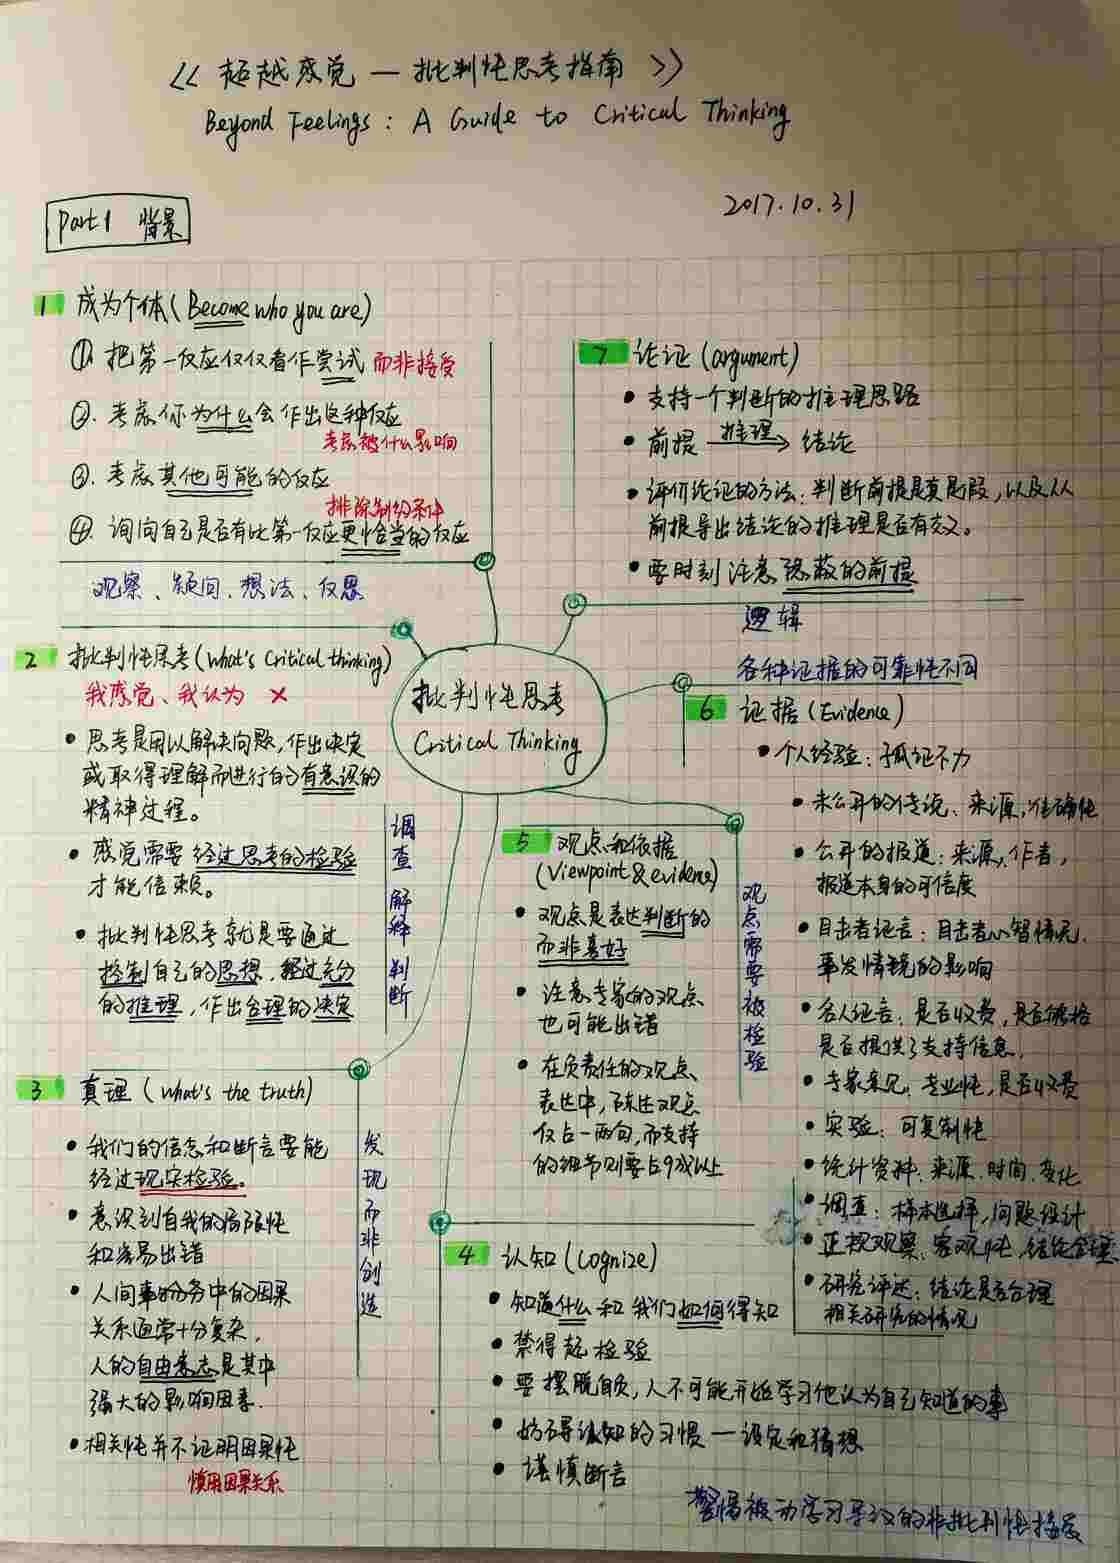 《超越感觉—批判性思考指南》
Beyond Feelings: A Guide to Critical Thinking
2017.10.31
Part 1 背景
1 成为个体(Become who you are)
①. 把第一反应仅仅看作尝试 而非接受
②. 考虑你为什么会作出这种反应
考虑被什么影响
③. 考虑其他可能的反应
排除制约条件
④. 询问自己是否有比第一反应更恰当的反应
观察、疑问、想法、反思
2 批判性思考(what's critical thinking)
我感觉、我认为 ×
• 思考是用以解决问题,作出决定
或取得理解而进行的有意识的
精神过程。
• 感觉需要经过思考的检验
才能信赖。
• 批判性思考就是要通过
控制自己的思想,经过充分
的推理,作出合理的决定
调查 解释 判断
3 真理(what's the truth)
• 我们的信念和断言要能
经过现实检验。
• 意识到自我的局限性
和容易出错
• 人间事务中的因果
关系通常十分复杂,
人的自由意志是其中
强大的影响因素.
• 相关性并不证明因果性
慎用因果关系
发现而非创造
批判性思考
Critical Thinking
4 认知(Cognize)
• 知道什么和我们如何得知
• 禁得起检验
• 要摆脱自负,人不可能开始学习他认为自己知道的事
• 妨碍认知的习惯—设定和猜想
• 谨慎断言
警惕被动学习导致的非批判性接受
5 观点和依据
(Viewpoint & evidence)
• 观点是表达判断的
而非喜好
• 注意专家的观点
也可能出错
• 在负责任的观点
表达中,陈述观点
仅占一两句,而支持
的细节则要占9成以上
观点需要被检验
各种证据的可靠性不同
6 证据(Evidence)
• 个人经验:孤证不力
• 未公开的传说、来源,准确性
• 公开的报道:来源,作者,
报道本身的可信度
• 目击者证言:目击者心智情况,
事发情境的影响
• 名人证言:是否收费,是否够格
是否提供了支持信息.
• 专家意见:专业性,是否收费
• 实验:可复制性
• 统计资料:来源.时间.变化
• 调查:样本选择,问题设计
• 正规观察、客观性,结论合理
• 研究评述:结论是否合理
相关研究的情况
7 论证(argument)
• 支持一个判断的推理思路
• 前提 推理→ 结论
• 评价论证的方法:判断前提是真是假,以及从
前提导出结论的推理是否有效。
• 要时刻注意隐蔽的前提
逻辑